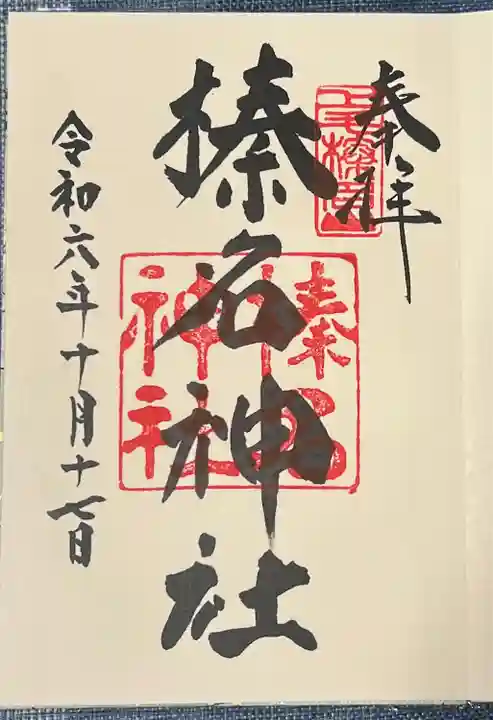 奉拝
上榛名山
榛名神社
榛名神社
令和六年十月十七日